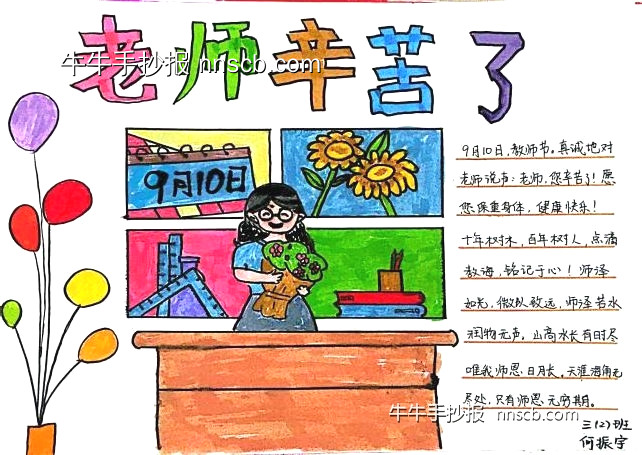 老师辛苦了
牛牛手抄报 nnscb.com
9月10日
9月10日,教师节。真诚地对
老师说声:老师,您辛苦了!愿
您保重身体,健康快乐!
十年树木,百年树人,点滴
教诲,铭记于心!师泽
如光,微以致远,师泽若水
润物无声。山高水长有时尽
唯我师恩日月长。天涯海角
尽处,只有师恩无穷期。
牛牛手抄报 nnscb.com
三(2)班
何振宇